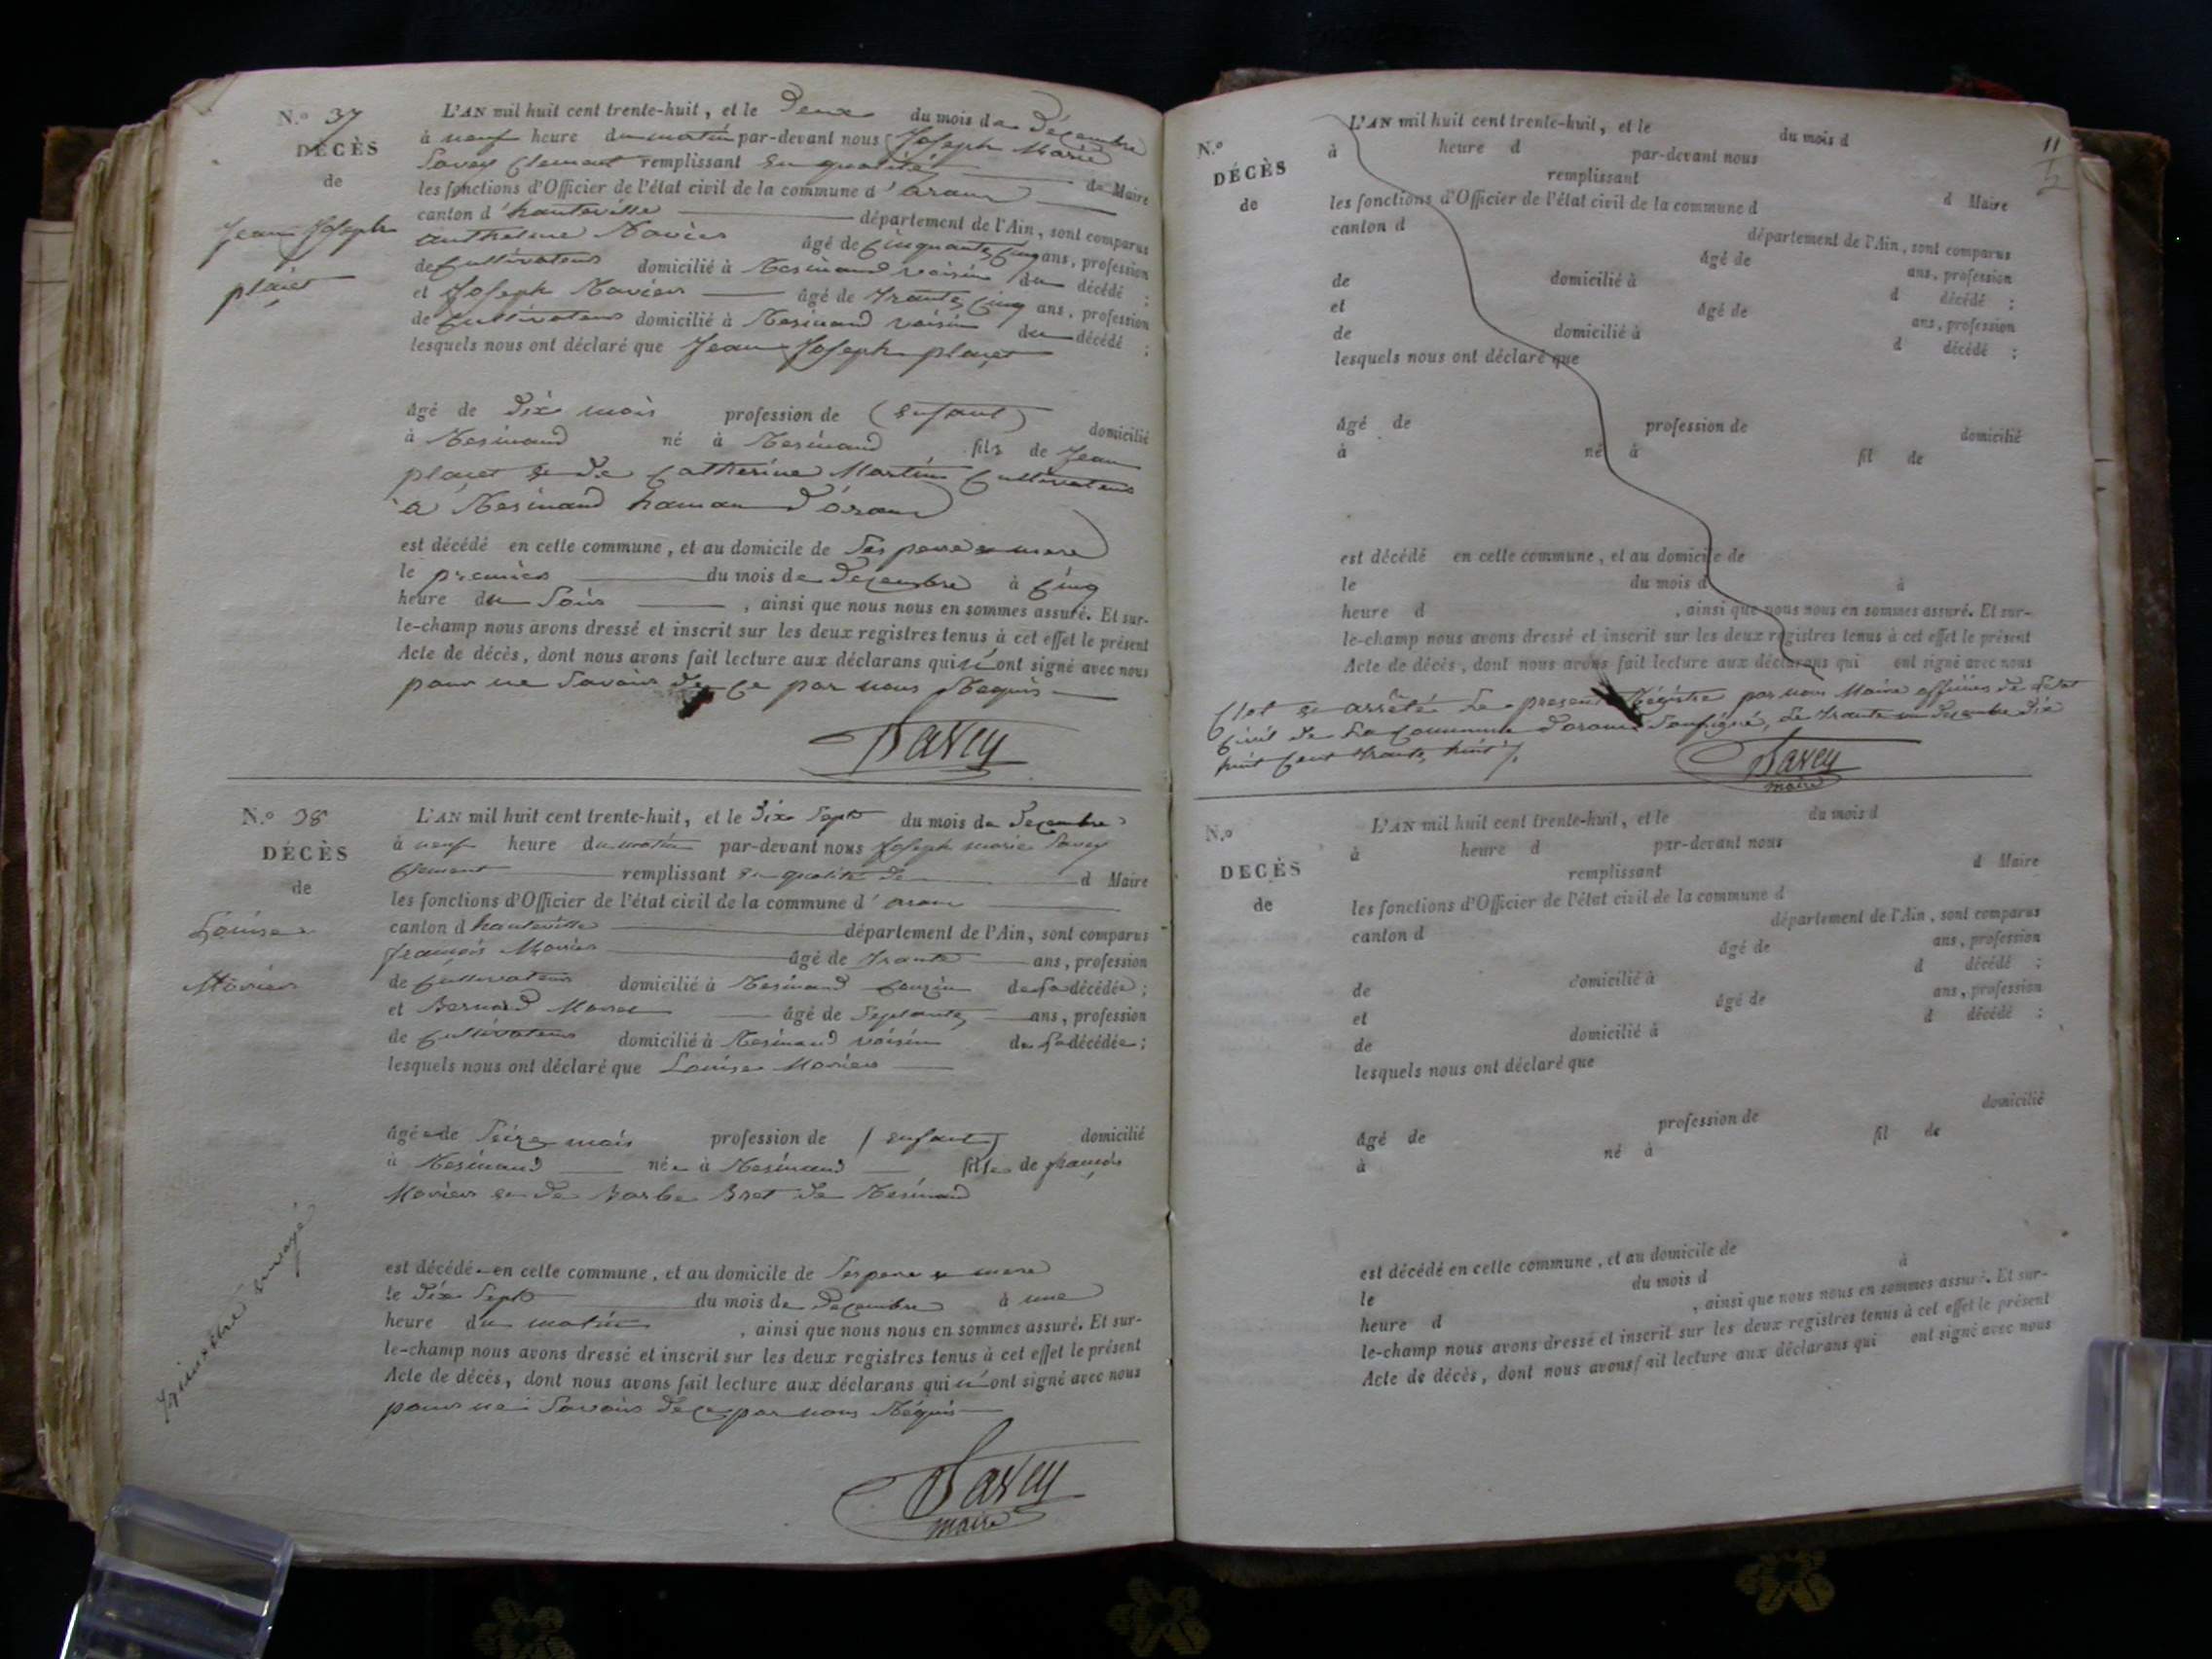 N.º 37
DÉCÈS
de
Jean Joseph
plaiet
L'AN mil huit cent trente-huit, et le Deux du mois de Décembre
à neuf heure du matin par-devant nous Joseph Marie
Savey Clement remplissant en qualité de Maire
les fonctions d'Officier de l'état civil de la commune d'aranc
canton d'hauteville département de l'Ain, sont comparus
anthelme Mavier âgé de Cinquante Cinq ans, profession
de Cultivateur domicilié à Resinand voisin du décédé ;
et Joseph Mavier âgé de trante Cinq ans, profession
de Cultivateur domicilié à Resinand voisin du décédé ;
lesquels nous ont déclaré que Jean Joseph plaiet
âgé de Dix mois profession de (enfant) domicilié
à Resinand né à Resinand fils de Jean
plaiet et de Catherine Martin Cultivateur
à Resinand hamau d'aranc
est décédé en cette commune, et au domicile de Ses pere et mere
le premier du mois de Decembre à Cinq
heure du Soir , ainsi que nous nous en sommes assuré. Et sur-
le-champ nous avons dressé et inscrit sur les deux registres tenus à cet effet le présent
Acte de décès, dont nous avons fait lecture aux déclarans qui n'ont signé avec nous
pour ne Savoir de Ce par nous Requis
Savey
N.º 38
DÉCÈS
de
Louise
Mavier
L'AN mil huit cent trente-huit, et le Dix Sept du mois de Decembre
à neuf heure du matin par-devant nous Joseph marie Savey
Clement remplissant en qualité de d Maire
les fonctions d'Officier de l'état civil de la commune d'aranc
canton d hauteville département de l'Ain, sont comparus
françois Mavier âgé de trante ans, profession
de Cultivateur domicilié à Resinand Couzin de la décédée ;
et Bernard âgé de Septante ans, profession
de Cultivateur domicilié à Resinand voisin de la décédée ;
lesquels nous ont déclaré que Louise Mavier
âgée de Seize mois profession de (enfant) domicilié
à Resinand née à Resinand fille de françois
Mavier et de Barbe Bret de Resinand
est décédée en cette commune, et au domicile de Ses pere et mere
le Dix Sept du mois de Decembre à une
heure du matin , ainsi que nous nous en sommes assuré. Et sur-
le-champ nous avons dressé et inscrit sur les deux registres tenus à cet effet le présent
Acte de décès, dont nous avons fait lecture aux déclarans qui n'ont signé avec nous
pour ne Savoir de Ce par nous Réquis
Savey
maire
envoyé
11
N.º
DÉCÈS
de
L'AN mil huit cent trente-huit, et le du mois d
à heure d par-devant nous
remplissant d Maire
les fonctions d'Officier de l'état civil de la commune d
canton d département de l'Ain, sont comparus
âgé de ans, profession
de domicilié à d décédé ;
et âgé de ans, profession
de domicilié à d décédé ;
lesquels nous ont déclaré que
âgé de profession de domicilié
à né à fil de
est décédé en cette commune, et au domicile de
le du mois d à
heure d , ainsi que nous nous en sommes assuré. Et sur-
le-champ nous avons dressé et inscrit sur les deux registres tenus à cet effet le présent
Acte de décès, dont nous avons fait lecture aux déclarans qui ont signé avec nous
Clot et arrêté Le present Régistre par nous Maire officier de letat
Civil de La Commune d'aranc Soussigné, Le trante un decembre dix
huit Cent trante huit
Savey
maire
N.º
DÉCÈS
de
L'AN mil huit cent trente-huit, et le du mois d
à heure d par-devant nous
remplissant d Maire
les fonctions d'Officier de l'état civil de la commune d
canton d département de l'Ain, sont comparus
âgé de ans, profession
de domicilié à d décédé ;
et âgé de ans, profession
de domicilié à d décédé ;
lesquels nous ont déclaré que
âgé de profession de domicilié
à né à fil de
est décédé en cette commune, et au domicile de
le du mois d à
heure d , ainsi que nous nous en sommes assuré. Et sur-
le-champ nous avons dressé et inscrit sur les deux registres tenus à cet effet le présent
Acte de décès, dont nous avons fait lecture aux déclarans qui ont signé avec nous